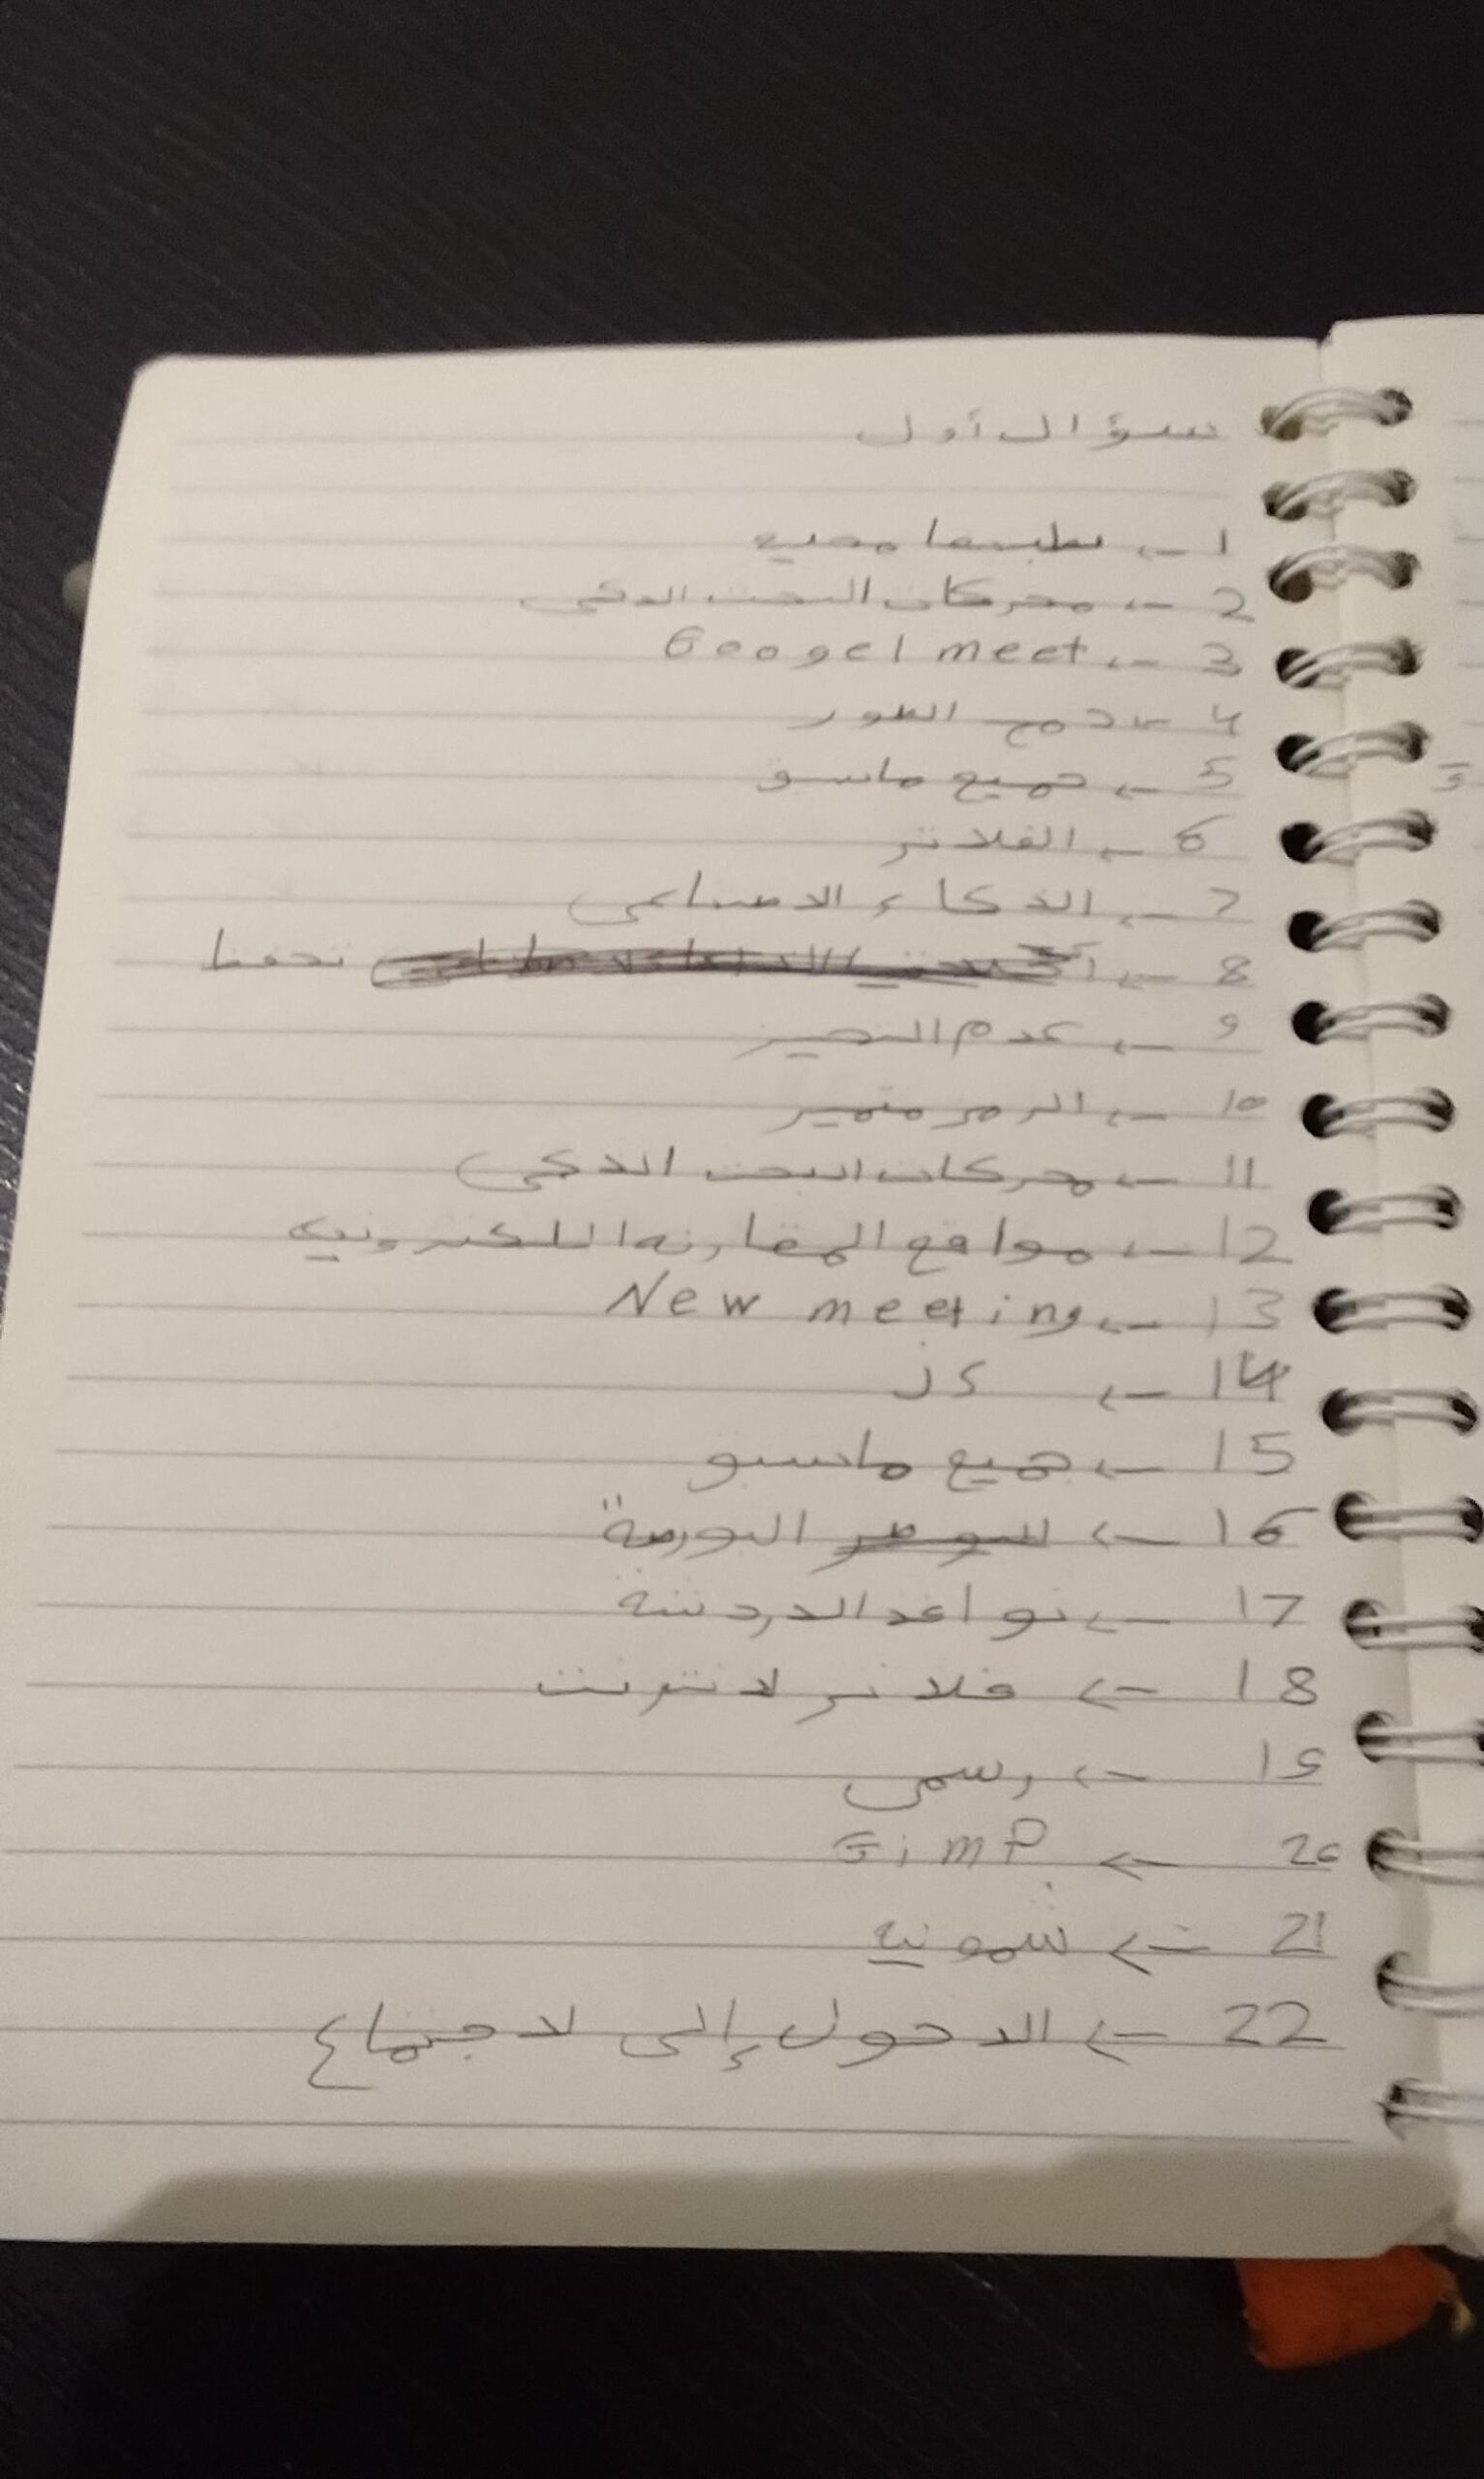 سؤال أول
1 ←
2 ← محركات البحث الذكى
3 ← Googel meet
4 ← دمج الطور
5 ← جميع ماسبق
6 ← الفلاتر
7 ← الذكاء الاصناعى
8 ←
9 ← عدم التحيز
10 ← الرمز مميز
11 ← محركات البحث الذكى
12 ← مواقع المقارنه اللكترونيه
13 ← New meeting
14 ←
15 ← جميع ماسبق
16 ← البورصة
17 ← نوافذ الدردشة
18 ← فلاتر لانترنت
19 ← رسمى
20 ← GimP
21 ←
22 ← الدخول إلى لاجتماع